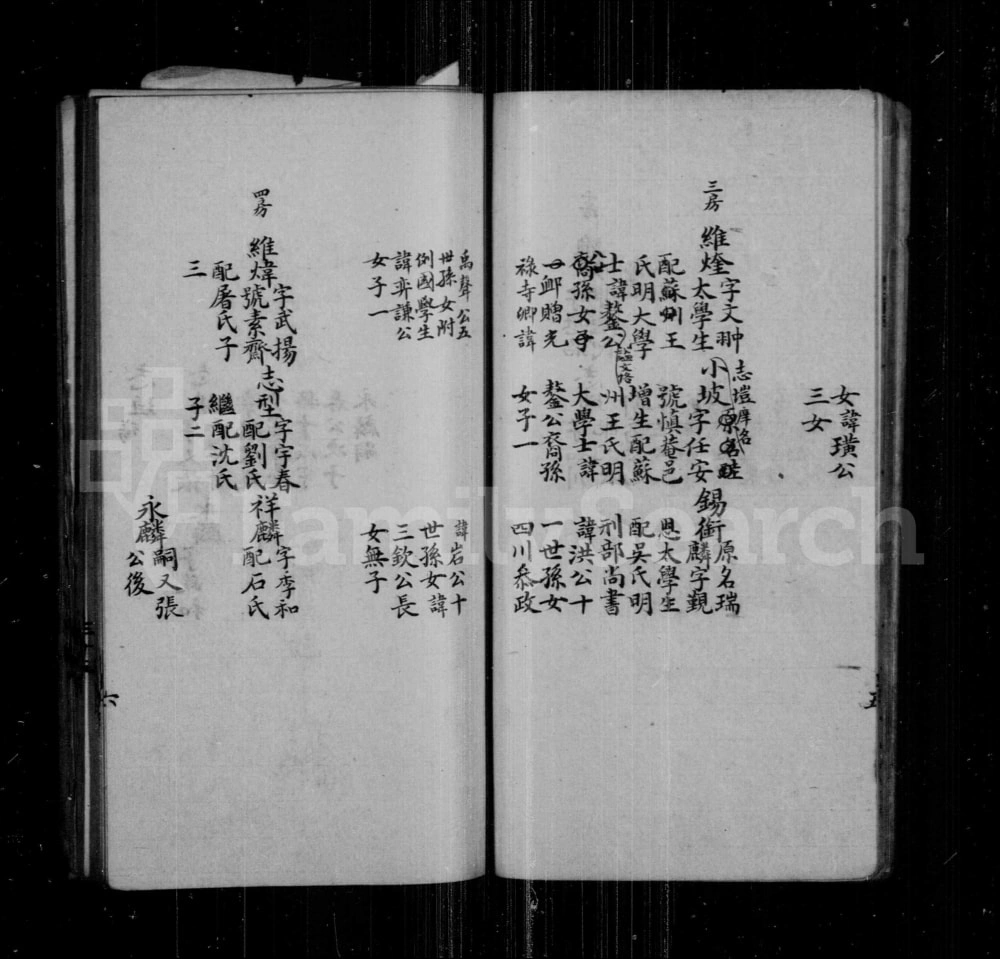 女諱璜公
三女
三房
維煃字文翀
太學生
配蘇州王
氏明大學
士諱鏊公
諡文恪
裔孫女
贈光
祿寺卿諱
志塏庠名
小坡字任安
號慎菴邑
增生配蘇
州王氏明
大學士諱
鏊公裔孫
女子一
錫衛原名瑞
麟字覲
恩太學生
配吳氏明
刑部尚書
諱洪公十
一世孫女
四川叅政
五
禹聲公五
世孫女附
例國學生
諱弈謙公
女子一
諱岩公十
世孫女諱
三欽公長
女無子
四房
維煒字武揚
號素齋
配屠氏子
三
志型字宇春
配劉氏
繼配沈氏
子二
祥麟字季和
配石氏
永麟嗣又張
公後
六
FamilySearch